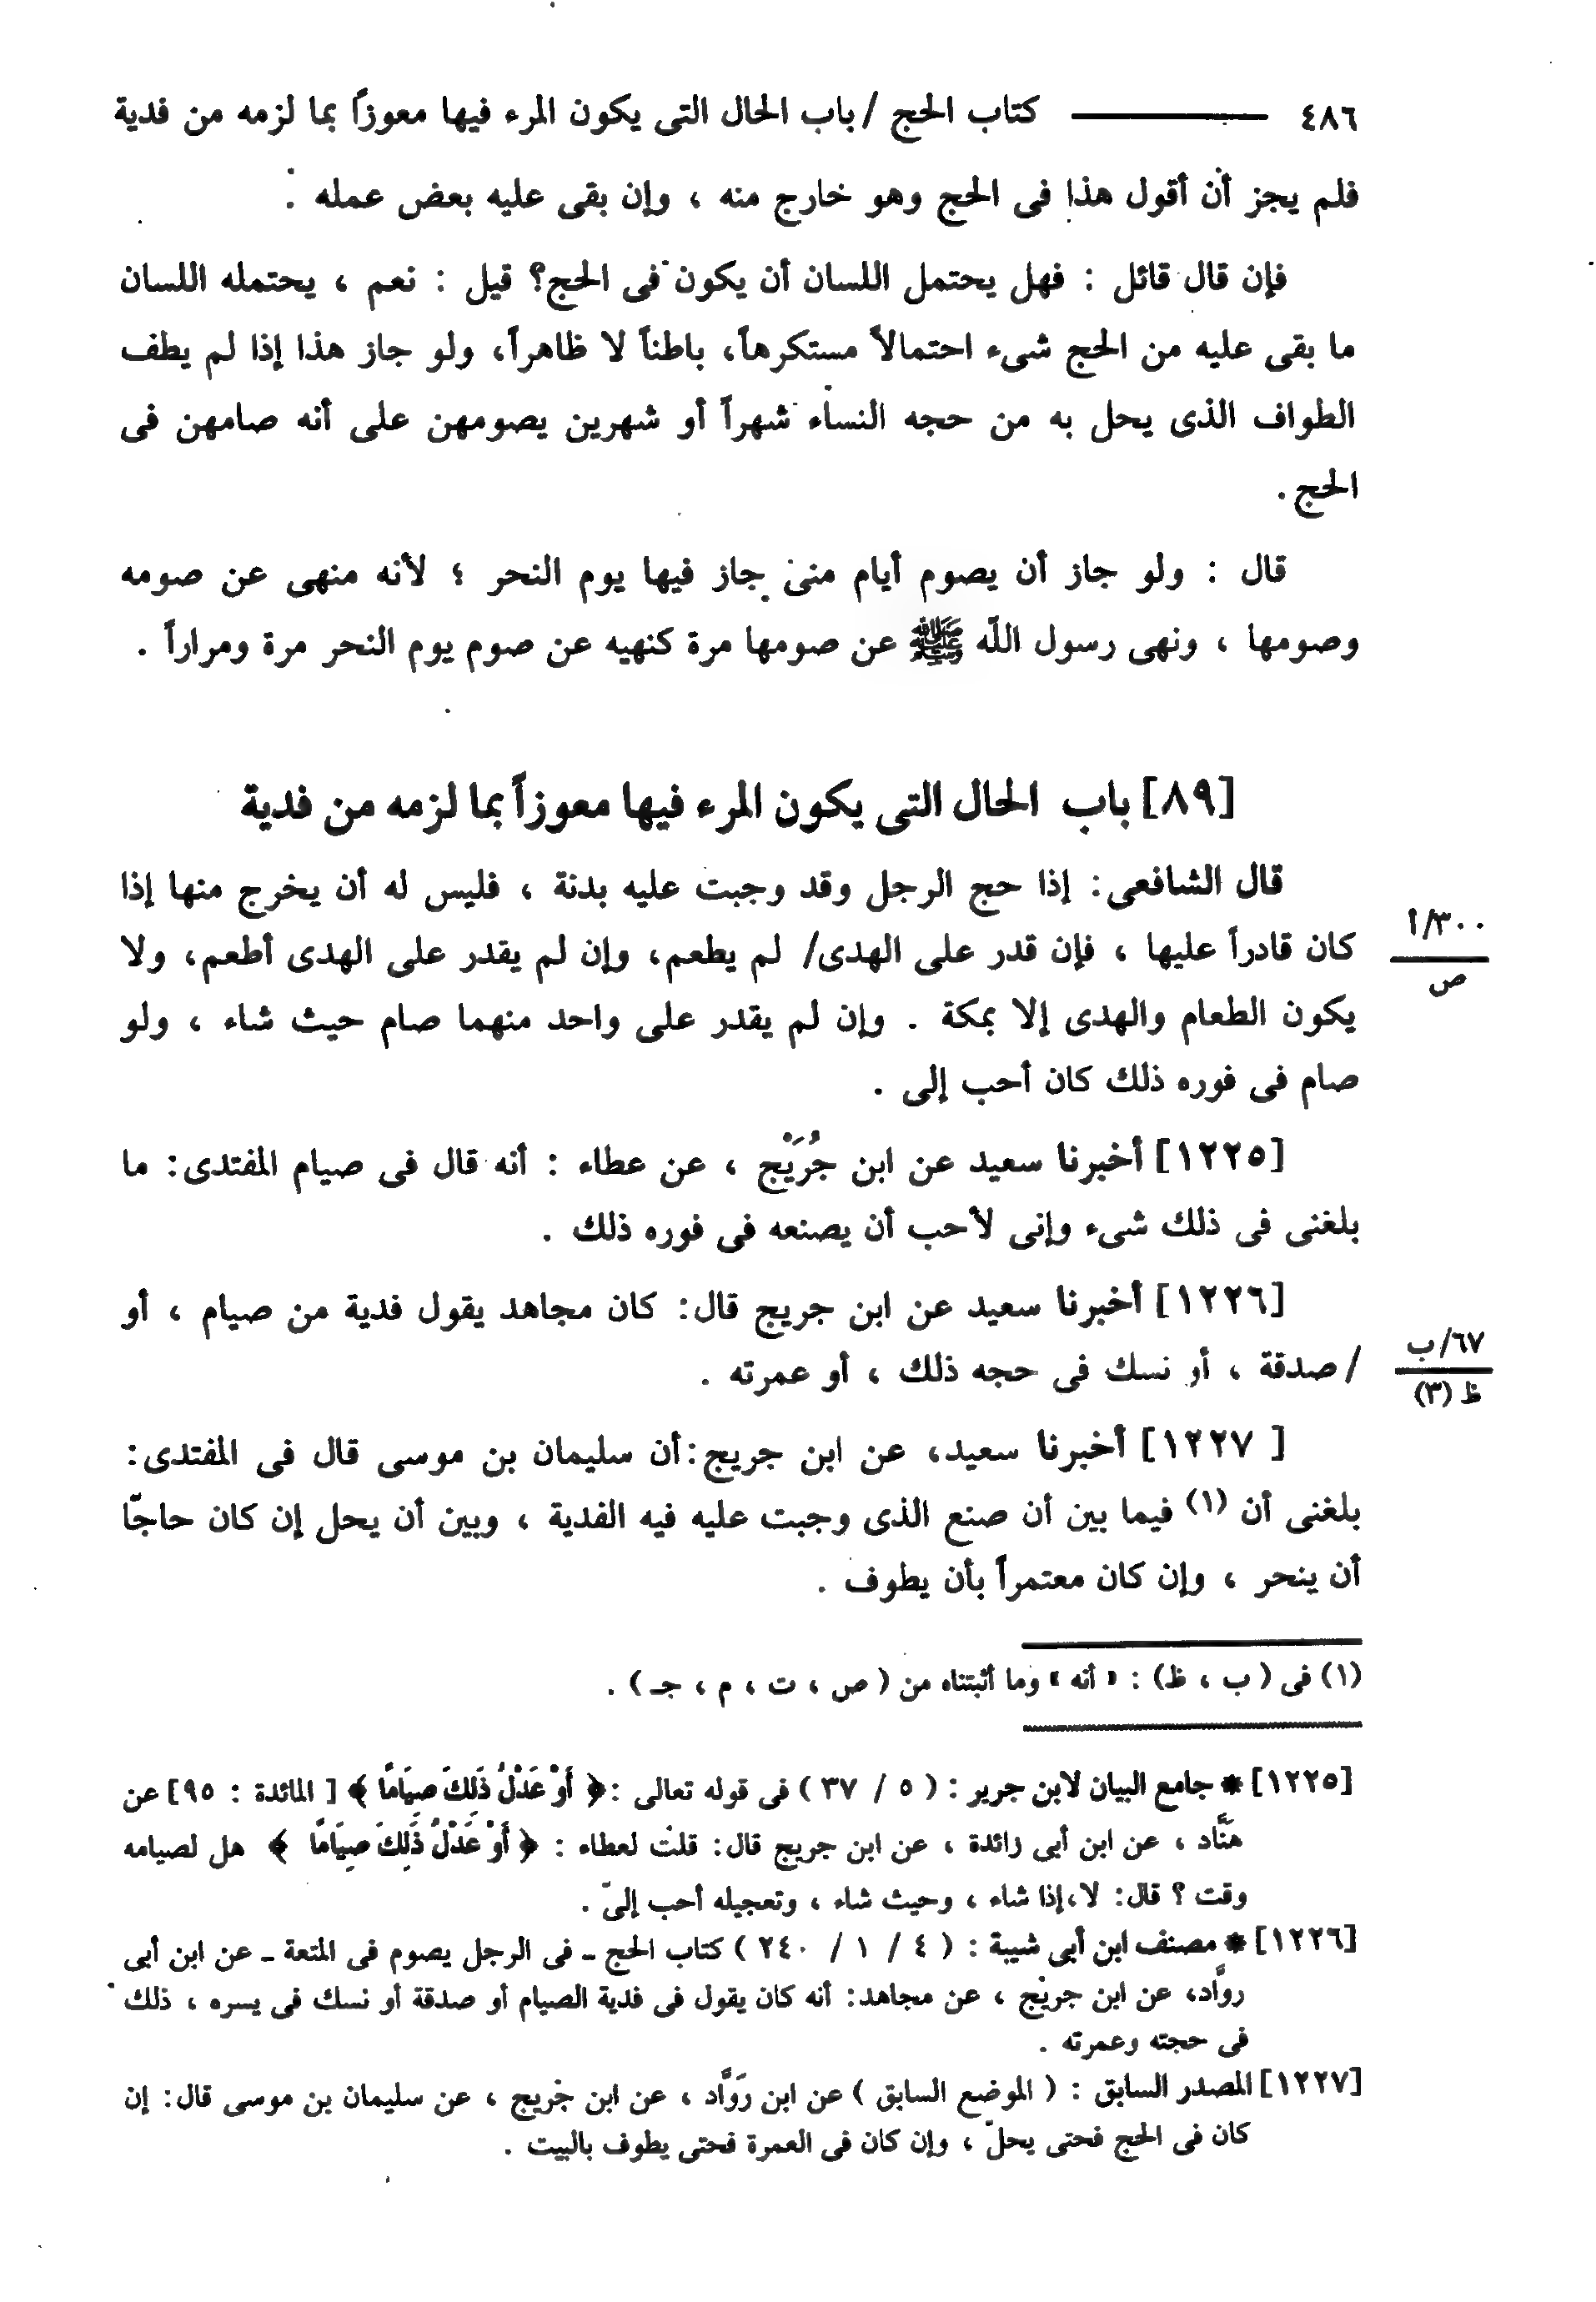 ٤٨٦ كتاب الحج / باب الحال التى يكون المرء فيها معوزاً بما لزمه من فدية
فلم يجز أن أقول هذا فى الحج وهو خارج منه ، وإن بقى عليه بعض عمله .
فإن قال قائل : فهل يحتمل اللسان أن يكون فى الحج؟ قيل : نعم ، يحتمله اللسان
ما بقى عليه من الحج شىء احتمالاً مستكرهاً، باطناً لا ظاهراً، ولو جاز هذا إذا لم يطف
الطواف الذى يحل به من حجه النساء شهراً أو شهرين يصومهن على أنه صامهن فى
الحج .
قال : ولو جاز أن يصوم أيام منى جاز فيها يوم النحر ؛ لأنه منهى عن صومه
وصومها ، ونهى رسول اللّه ﷺ عن صومها مرة كنهيه عن صوم يوم النحر مرة ومراراً .
[٨٩] باب الحال التى يكون المرء فيها معوزاً بما لزمه من فدية
قال الشافعى: إذا حج الرجل وقد وجبت عليه بدنة ، فليس له أن يخرج منها إذا
كان قادراً عليها ، فإن قدر على الهدى/ لم يطعم، وإن لم يقدر على الهدى أطعم، ولا
٣٠٠/أ
ص
يكون الطعام والهدى إلا بمكة . وإن لم يقدر على واحد منهما صام حيث شاء ، ولو
صام فى فوره ذلك كان أحب إلى .
[١٢٢٥] أخبرنا سعيد عن ابن جُرَيْج ، عن عطاء : أنه قال فى صيام المفتدى: ما
بلغنى فى ذلك شىء وإنى لأحب أن يصنعه فى فوره ذلك .
[١٢٢٦] أخبرنا سعيد عن ابن جريج قال: كان مجاهد يقول فدية من صيام ، أو
/ صدقة ، أو نسك فى حجه ذلك ، أو عمرته .
٦٧/ب
ظ (٣)
[ ١٢٢٧] أخبرنا سعيد، عن ابن جريج:أن سليمان بن موسى قال فى المفتدى:
بلغنى أن (١) فيما بين أن صنع الذى وجبت عليه فيه الفدية ، وبين أن يحل إن كان حاجّا
أن ينحر ، وإن كان معتمراً بأن يطوف .
(١) فى ( ب ، ظ) : « أنه » وما أثبتناه من ( ص ، ت ، م ، جـ ) .
[١٢٢٥] * جامع البيان لابن جرير : ( ٥ / ٣٧ ) فى قوله تعالى :﴿ أَوْ عَدْلُ ذَلِكَ صِيَامًا ﴾ [ المائدة : ٩٥] عن
هَنَّاد ، عن ابن أبى زائدة ، عن ابن جريج قال: قلت لعطاء : ﴿ أَوْ عَدْلُ ذَلِكَ صِيَامًا ﴾ هل لصيامه
وقت ؟ قال: لا،إذا شاء ، وحيث شاء ، وتعجيله أحب إلىّ .
[١٢٢٦] * مصنف ابن أبى شيبة : ( ٤ / ١ / ٢٤٠ ) كتاب الحج ـ فى الرجل يصوم فى المتعة ـ عن ابن أبى
روَّاد، عن ابن جريج ، عن مجاهد: أنه كان يقول فى فدية الصيام أو صدقة أو نسك فى يسره ، ذلك
فى حجته وعمرته .
[١٢٢٧] المصدر السابق : ( الموضع السابق ) عن ابن رَوَّاد ، عن ابن جريج ، عن سليمان بن موسى قال: إن
كان فى الحج فحتى يحلّ ، وإن كان فى العمرة فحتى يطوف بالبيت .